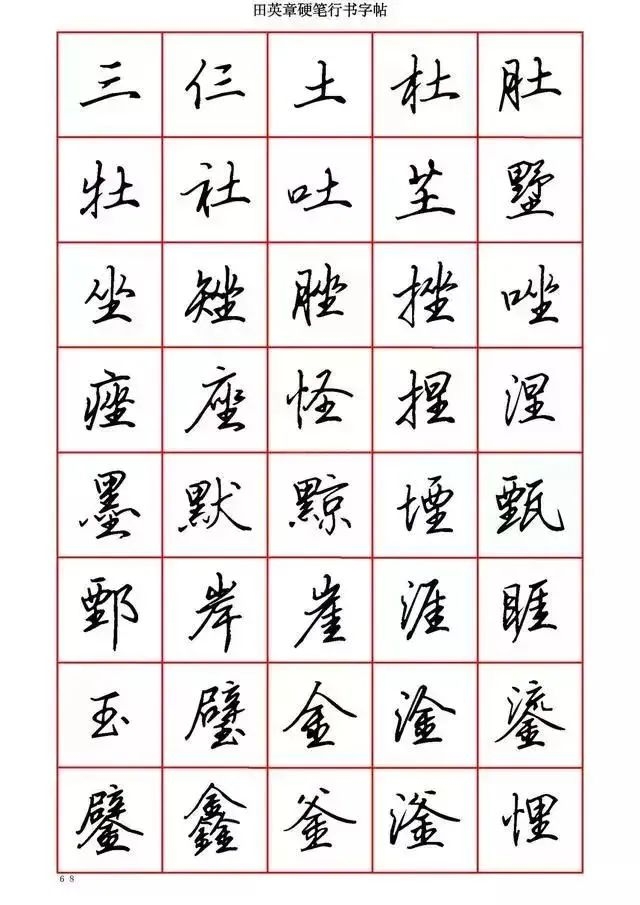 田英章硬笔行书字帖
三仨土杜肚
牡社吐芏墅
坐矬脞挫唑
痤座怪捏涅
墨默黥堙甄
鄄岸崖涯睚
玉璧金淦鎏
鐾鑫釜滏悝
68